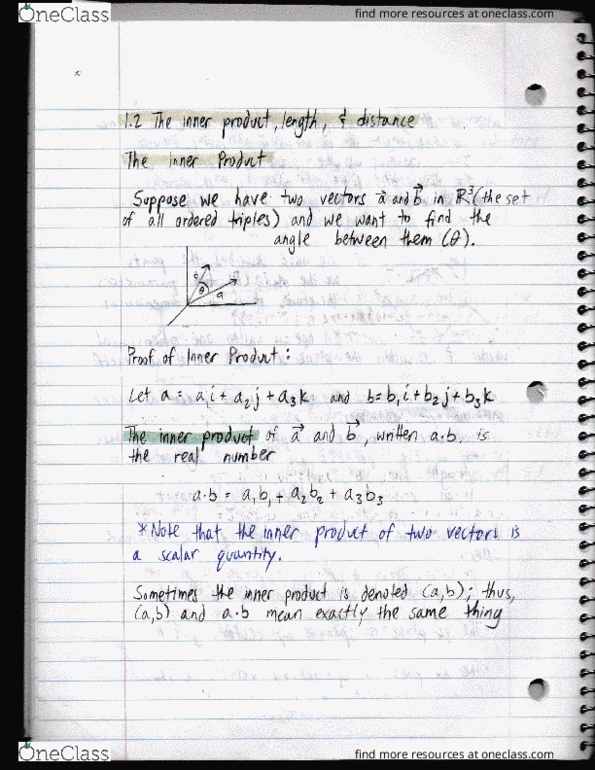 OneClass
find more resources at oneclass.com
1.2 The inner product, length, & distance
The Inner Product
Suppose we have two vectors a⃗ and b⃗ in ℝ³ (the set
of all ordered triples) and we want to find the
angle between them (θ).
θ
a
Proof of Inner Product:
Let a = a₁i + a₂j + a₃k and b = b₁i + b₂j + b₃k
The inner product of a⃗ and b⃗, written a·b, is
the real number
a·b = a₁b₁ + a₂b₂ + a₃b₃
*Note that the inner product of two vectors is
a scalar quantity.
Sometimes the inner product is denoted (a,b); thus,
(a,b) and a·b mean exactly the same thing
OneClass
find more resources at oneclass.com